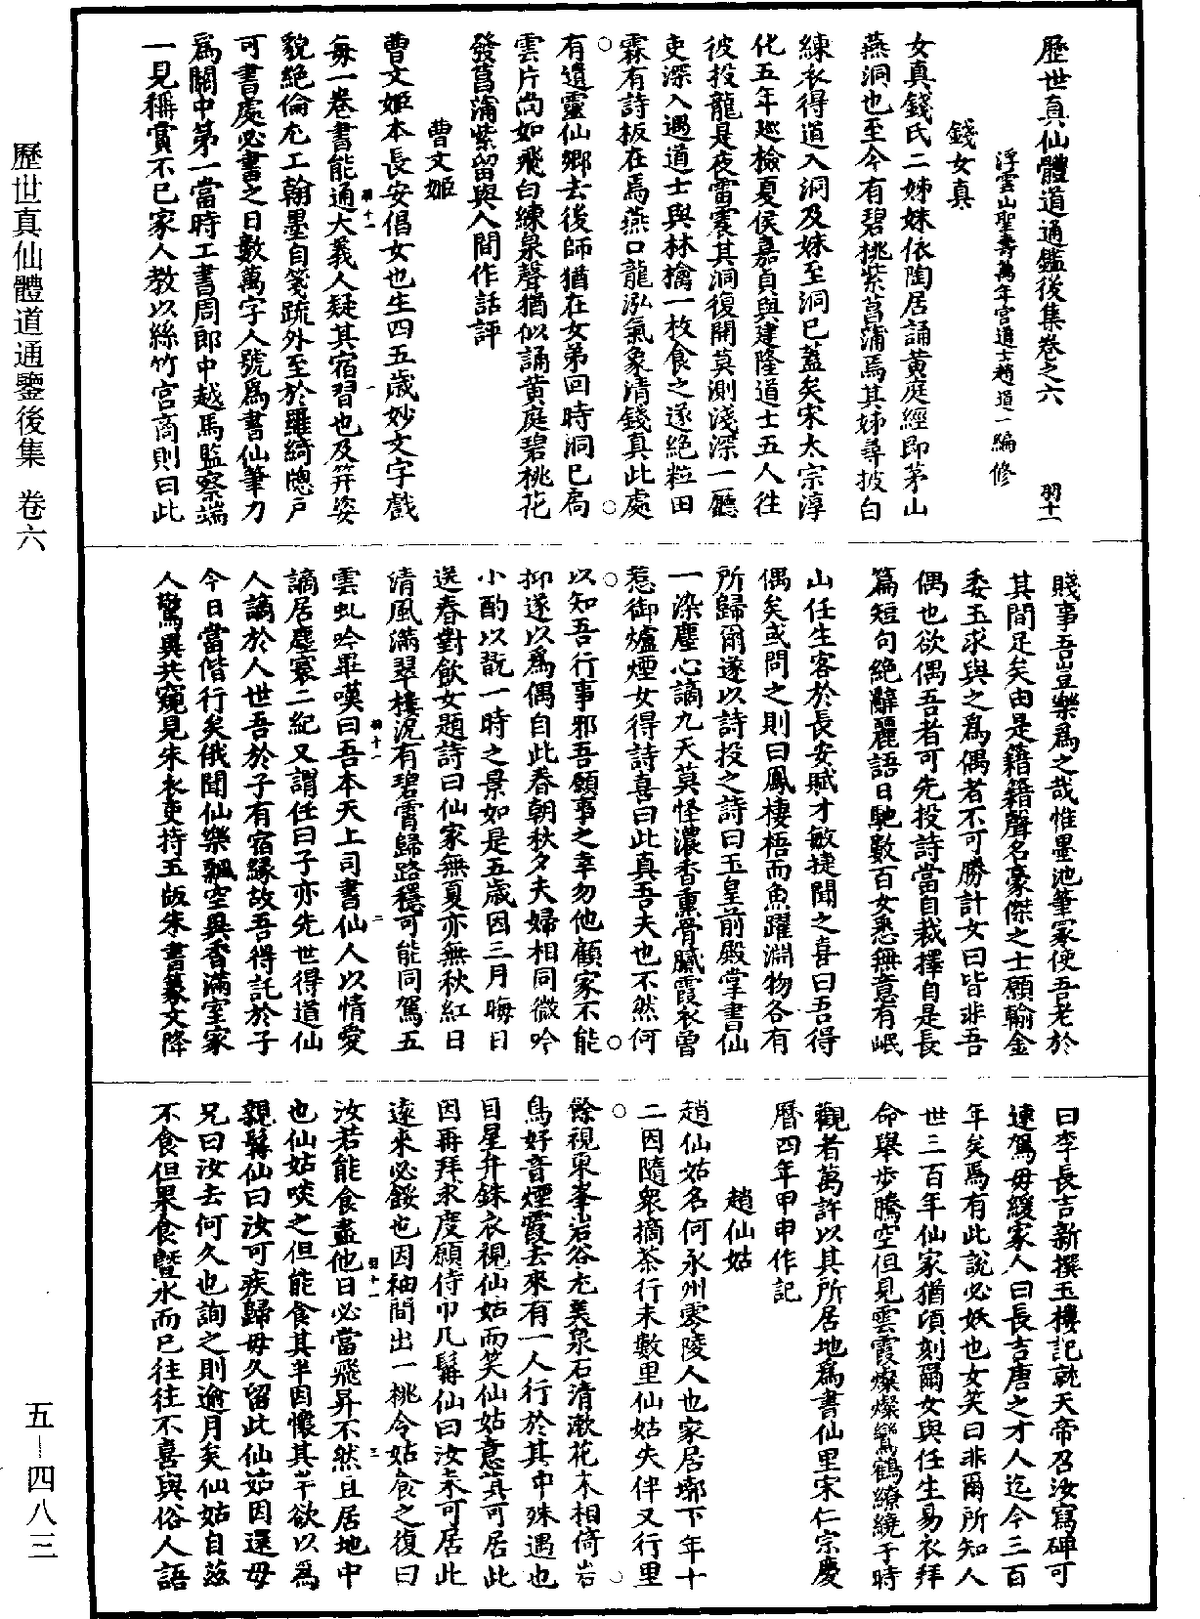 歷世真仙體道通鑑後集卷之六 羽十一
浮雲山聖壽萬年宮道士趙道一編修
錢女真
女真錢氏二姊妹依陶居誦黃庭經即茅山
燕洞也至今有碧桃紫菖蒲焉其姊尋披白
練衣得道入洞及妹至洞已蓋矣宋太宗淳
化五年廵檢夏侯嘉貞與建隆道士五人往
彼投龍是夜雷震其洞復開莫測淺深一廳
吏深入遇道士與林檎一枚食之遂絕粒田
霖有詩板在焉燕口龍泓氣象清錢真此處
有遺靈仙鄉去後師猶在女弟回時洞已扃
雲片尚如飛白練泉聲猶似誦黃庭碧桃花
發菖蒲紫留與人間作話評
曹文姬
曹文姬本長安倡女也生四五歲妙文字戲
每一卷書能通大義人疑其宿習也及笄姿
貌絕倫尤工翰墨自箋䟽外至於羅綺牕戶
可書處必書之日數萬字人號爲書仙筆力
爲關中第一當時工書周郎中越馬監察端
一見稱賞不已家人教以絲竹宮商則曰此
賤事吾豈樂爲之哉惟墨池筆冢使吾老於
其間足矣由是籍籍聲名豪傑之士願輸金
委玉求與之爲偶者不可勝計女曰皆非吾
偶也欲偶吾者可先投詩當自裁擇自是長
篇短句絕辭麗語日馳數百女悉無意有岷
山任生客於長安賦才敏捷聞之喜曰吾得
偶矣或問之則曰鳳棲梧而魚躍淵物各有
所歸爾遂以詩投之詩曰玉皇前殿掌書仙
一染塵心謫九天莫怪濃香熏骨膩霞衣曾
惹御爐煙女得詩喜曰此真吾夫也不然何
以知吾行事邪吾願事之幸勿他顧家不能
抑遂以爲偶自此春朝秋夕夫婦相同微吟
小酌以翫一時之景如是五歲因三月晦日
送春對飲女題詩曰仙家無夏亦無秋紅日
清風滿翠樓況有碧霄歸路穩可能同駕五
雲虬吟畢嘆曰吾本天上司書仙人以情愛
謫居塵寰二紀又謂任曰子亦先世得道仙
人謫於人世吾於子有宿緣故吾得託於子
今日當偕行矣俄聞仙樂飄空異香滿室家
人驚異共窺見朱衣吏持玉版朱書篆文降
曰李長吉新撰玉樓記就天帝召汝寫碑可
速駕毋緩家人曰長吉唐之才人迄今三百
年矣焉有此說必妖也女笑曰非爾所知人
世三百年仙家猶頃刻爾女與任生易衣拜
命舉步騰空但見雲霞爍爍鸞鶴繚繞于時
觀者萬許以其所居地爲書仙里宋仁宗慶
曆四年甲申作記
趙仙姑
趙仙姑名何永州零陵人也家居墎下年十
二因隨衆摘茶行未數里仙姑失伴又行里
餘視東峯岩谷尤美泉石清漱花木相倚岩
鳥好音煙霞去來有一人行於其中殊遇也
目星弁銖衣視仙姑而笑仙姑意其可居此
因再拜求度願侍巾几髯仙曰汝未可居此
遠來必餒也因袖間出一桃令姑食之復曰
汝若能食盡他日必當飛昇不然且居地中
也仙姑啖之但能食其半因懷其半欲以爲
親髯仙曰汝可疾歸毋久留此仙姑因還母
兄曰汝去何久也詢之則逾月矣仙姑自茲
不食但果食暨水而已往往不喜與俗人語
歷世真仙體道通鑒後集 卷六
五—四八三